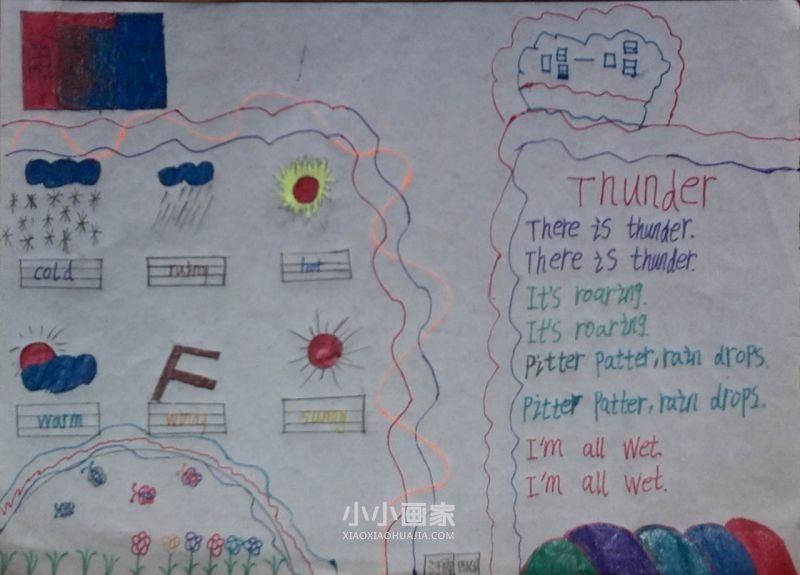 cold
rainy
hot
warm
windy
sunny
Thunder
There is thunder.
There is thunder.
It's roaring.
It's roaring.
Pitter patter, rain drops.
Pitter patter, rain drops.
I'm all wet.
I'm all wet.
小小画家
XIAOXIAOHUAJIA.COM